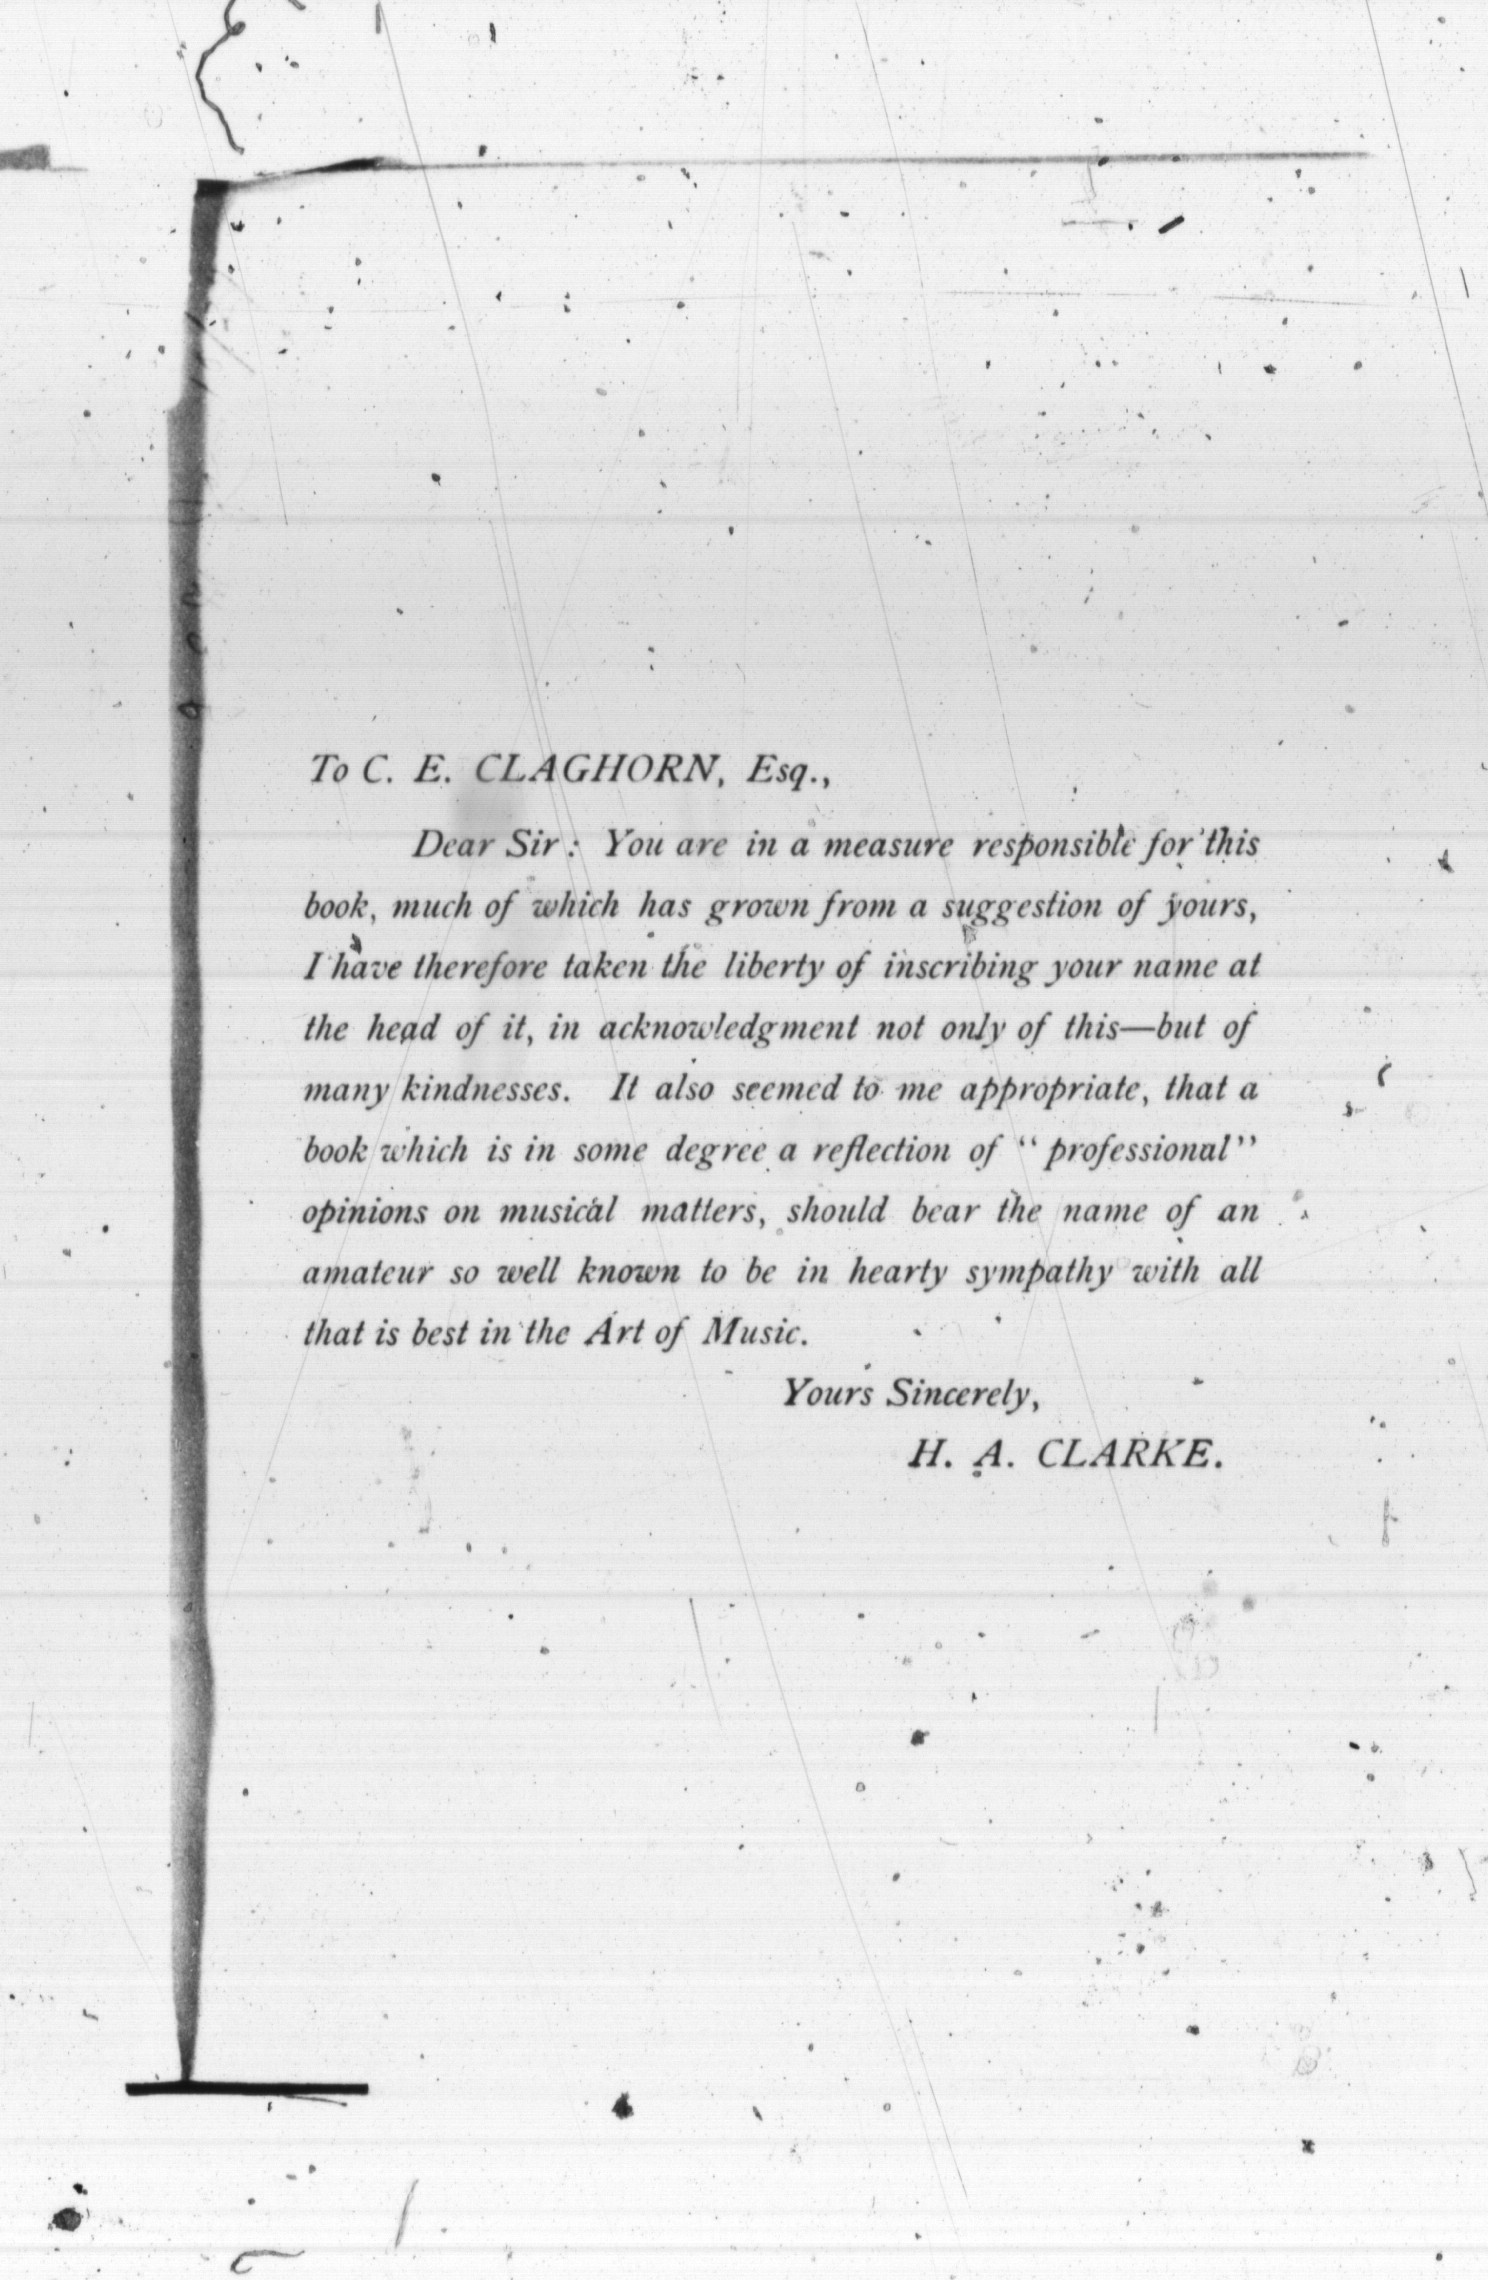 To C. E. CLAGHORN, Esq.,
Dear Sir: You are in a measure responsible for this
book, much of which has grown from a suggestion of yours,
I have therefore taken the liberty of inscribing your name at
the head of it, in acknowledgment not only of this—but of
many kindnesses. It also seemed to me appropriate, that a
book which is in some degree a reflection of “professional”
opinions on musical matters, should bear the name of an
amateur so well known to be in hearty sympathy with all
that is best in the Art of Music.
Yours Sincerely,
H. A. CLARKE.